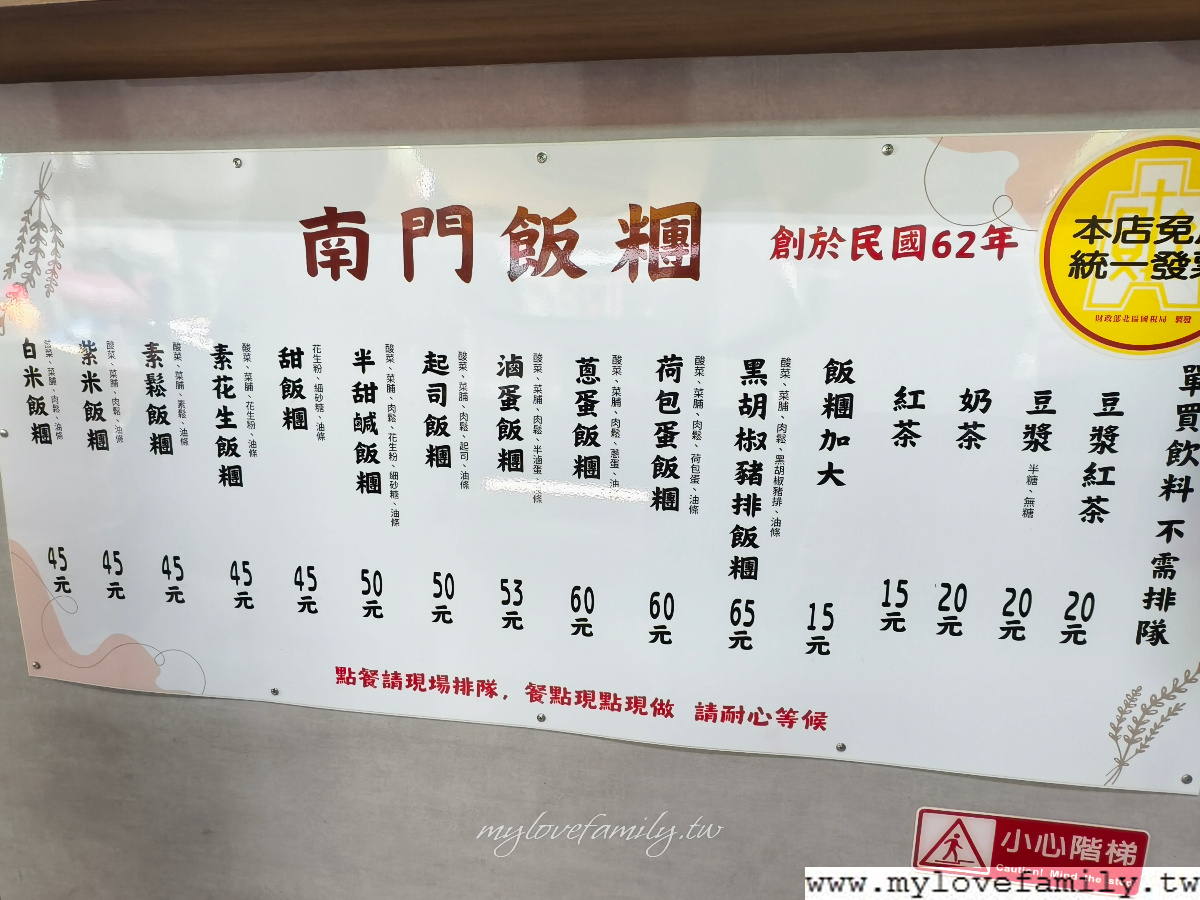 南門飯糰
創於民國62年
本店免
統一發票
財政部北區國稅局 製發
單買飲料 不需排隊
豆漿紅茶 20元
豆漿 半糖、無糖 20元
奶茶 20元
紅茶 15元
飯糰加大 15元
黑胡椒豬排飯糰 酸菜、菜脯、肉鬆、黑胡椒豬排、油條 65元
荷包蛋飯糰 酸菜、菜脯、肉鬆、荷包蛋、油條 60元
蔥蛋飯糰 酸菜、菜脯、肉鬆、蔥蛋、油 60元
滷蛋飯糰 酸菜、菜脯、肉鬆、半滷蛋、條 53元
起司飯糰 酸菜、菜脯、肉鬆、起司、油條 50元
半甜鹹飯糰 酸菜、菜脯、肉鬆、花生粉、細砂糖、油條 50元
甜飯糰 花生粉、細砂糖、油條 45元
素花生飯糰 酸菜、菜脯、花生粉、油條 45元
素鬆飯糰 酸菜、菜脯、素鬆、油條 45元
紫米飯糰 酸菜、菜脯、肉鬆、油條 45元
白米飯糰 酸菜、菜脯、肉鬆、油條 45元
點餐請現場排隊，餐點現點現做 請耐心等候
mylovefamily.tw
小心階梯
Caution! Mind the step
www.mylovefamily.tw